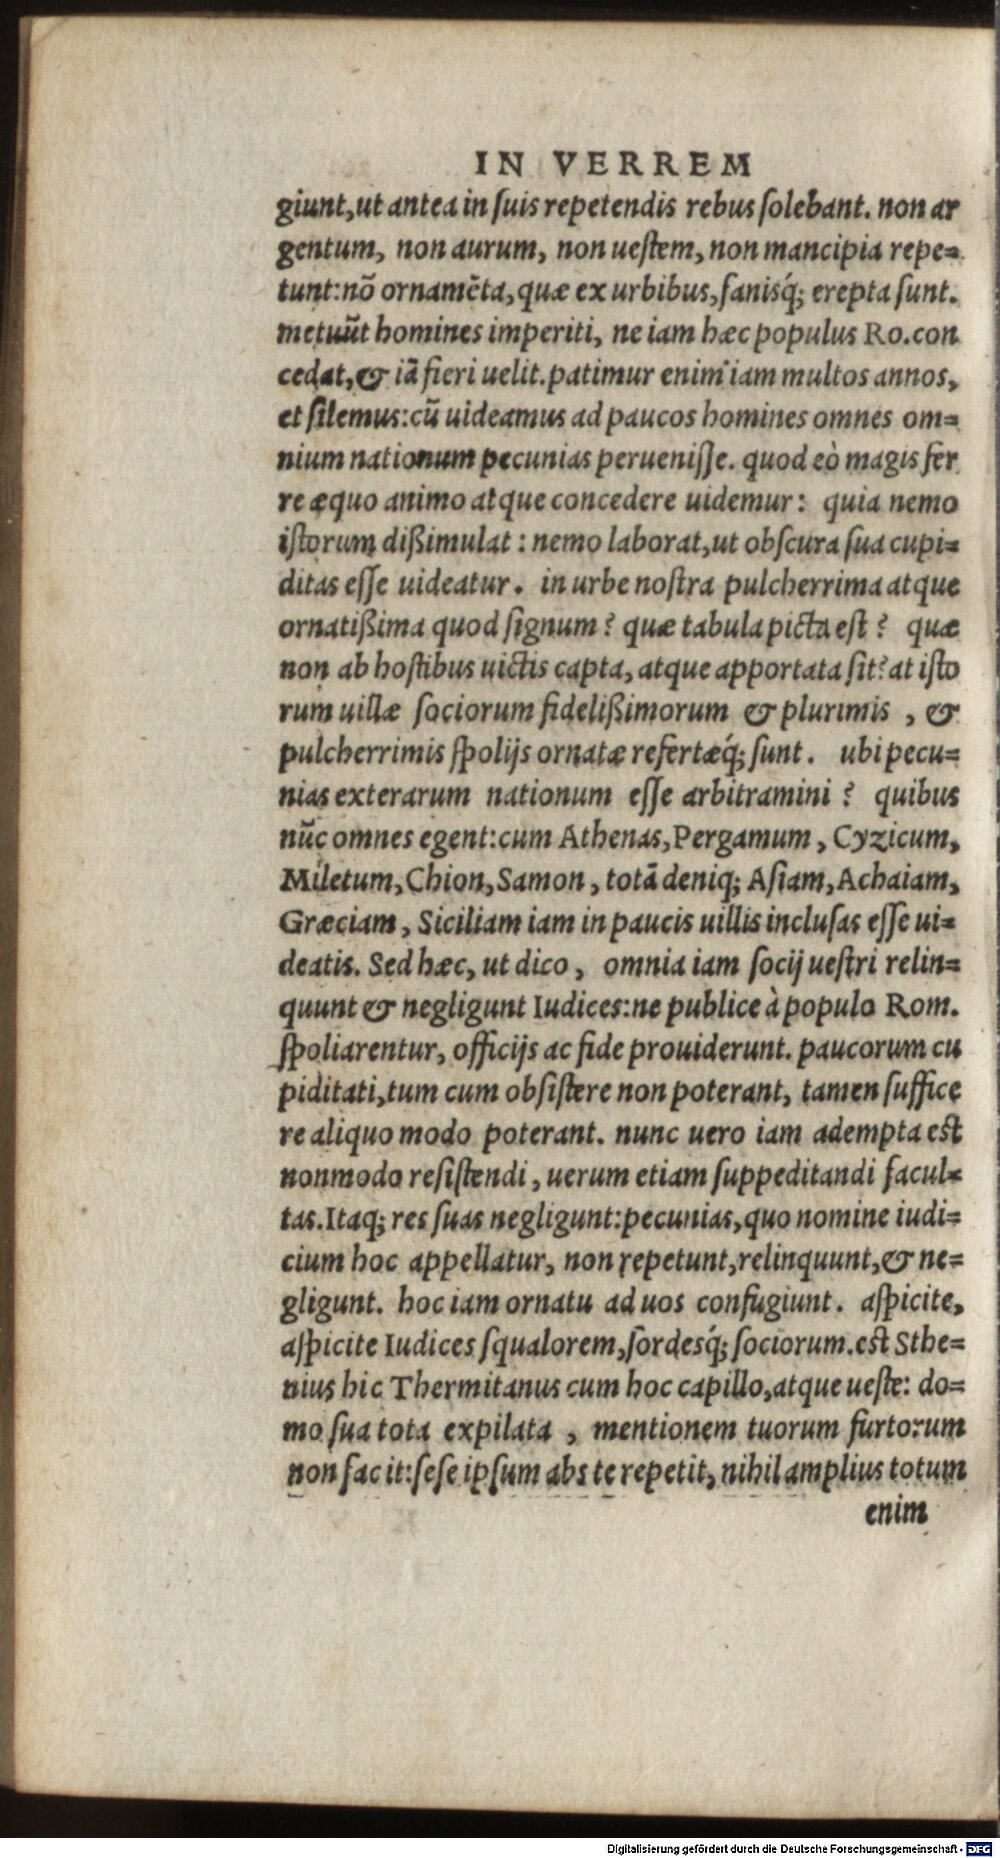 IN VERREM
giunt,ut antea in ſuis repetendis rebus ſolebant. non ar
gentum, non aurum, non ueſtem, non mancipia repe=
tunt:nõ ornamẽta,quæ ex urbibus,fanisq́; erepta ſunt.
metuũt homines imperiti, ne iam hæc populus Ro.con
cedat,& iã fieri uelit.patimur enim iam multos annos,
et ſilemus:cũ uideamus ad paucos homines omnes om=
nium nationum pecunias perueniſſe. quod eò magis fer
re æquo animo atque concedere uidemur: quia nemo
iſtorum dißimulat : nemo laborat,ut obſcura ſua cupi=
ditas eſſe uideatur. in urbe noſtra pulcherrima atque
ornatißima quod ſignum? quæ tabula picta eſt? quæ
non ab hoſtibus uictis capta, atque apportata ſit?at iſto
rum uillæ ſociorum fidelißimorum & plurimis , &
pulcherrimis ſpolijs ornatæ refertæq́; ſunt. ubi pecu=
nias exterarum nationum eſſe arbitramini? quibus
nũc omnes egent:cum Athenas,Pergamum, Cyzicum,
Miletum,Chion,Samon, totã deniq; Aſiam,Achaiam,
Græciam, Siciliam iam in paucis uillis incluſas eſſe ui=
deatis. Sed hæc, ut dico, omnia iam ſocij ueſtri relin=
quunt & negligunt Iudices:ne publice à populo Rom.
ſpoliarentur, officijs ac fide prouiderunt. paucorum cu
piditati,tum cum obſiſtere non poterant, tamen ſuffice
re aliquo modo poterant. nunc uero iam adempta eſt
nonmodo reſiſtendi, uerum etiam ſuppeditandi facul=
tas.Itaq; res ſuas negligunt:pecunias,quo nomine iudi=
cium hoc appellatur, non repetunt,relinquunt,& ne=
gligunt. hoc iam ornatu ad uos confugiunt. aſpicite,
aſpicite Iudices ſqualorem,ſordesq́; ſociorum.eſt Sthe=
nius hic Thermitanus cum hoc capillo,atque ueſte: do=
mo ſua tota expilata , mentionem tuorum furtorum
non facit:ſeſe ipſum abs te repetit, nihil amplius totum
enim
Digitalisierung gefördert durch die Deutsche Forschungsgemeinschaft - DFG